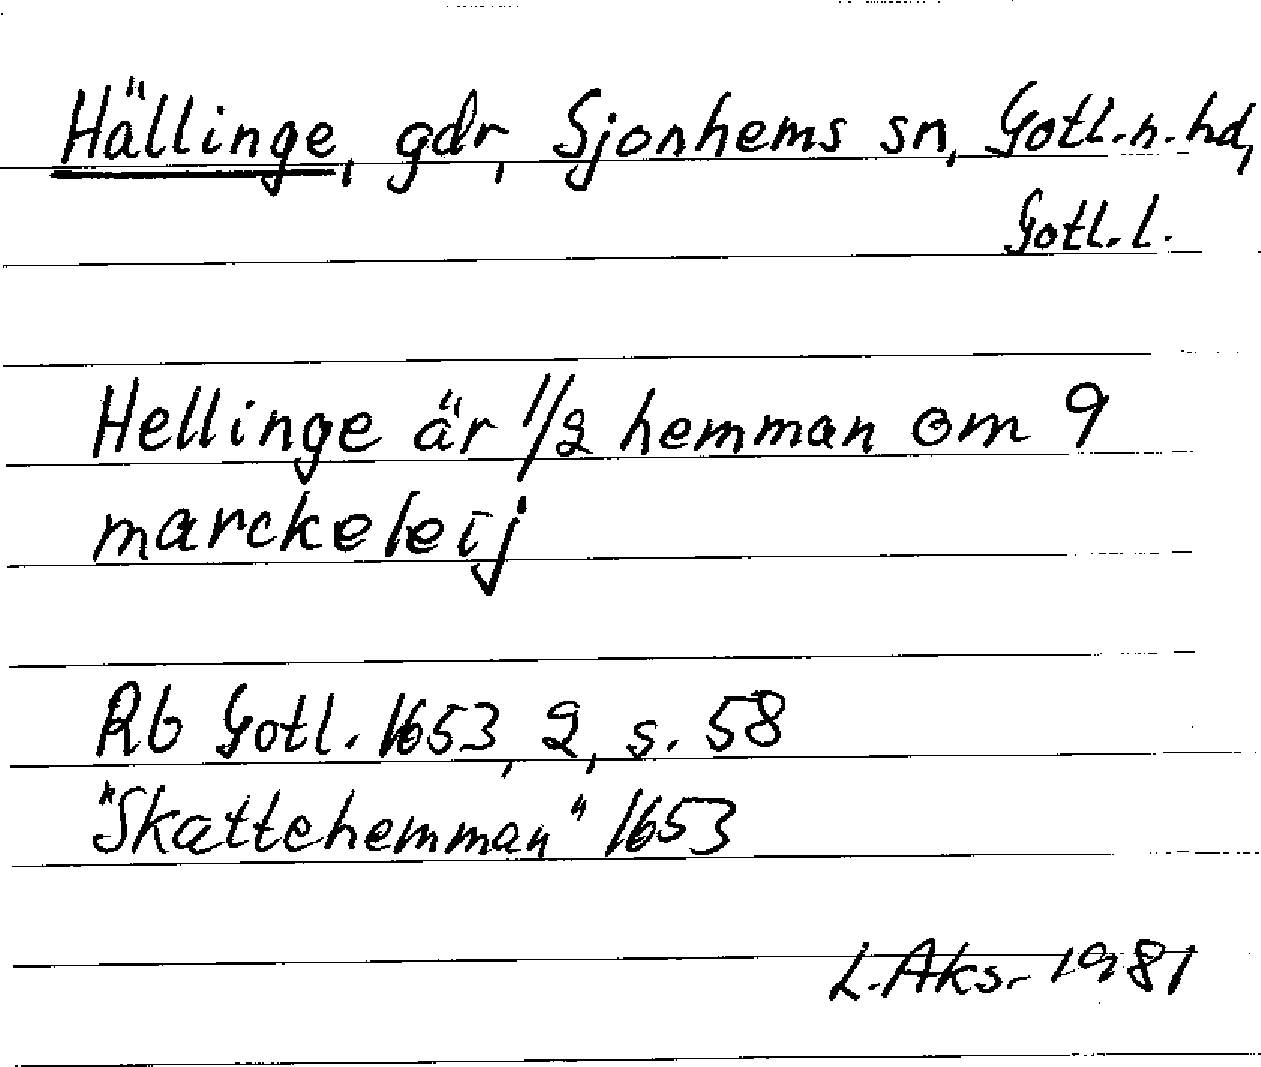 Hällinge, gdr, Sjonhems sn, Gotl. n. hd,
Gotl. l.
Hellinge är 1/2 hemman om 9
marckeleij
Rb Gotl. 1653, 2, s. 58
"Skattehemman" 1653
L. Aks. 1981